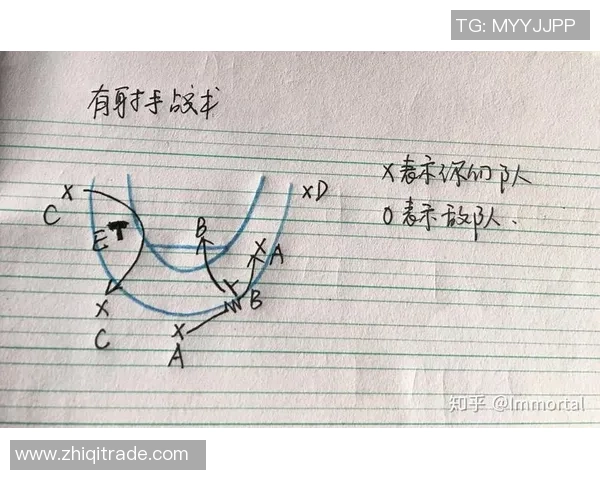 TG: MYYJJPP
有射手战术
X表示你的队
O表示敌队.
X
C
E
B
X
A
XD
X
C
X
A
B
知乎 @Immortal
www.zhiqitrade.com